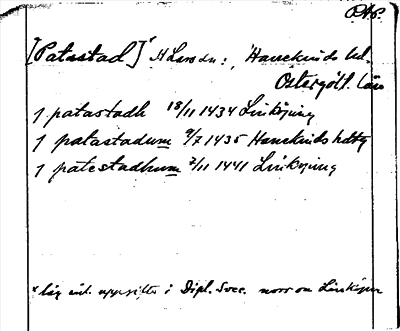 [Patastad]* H Lars sn:, Hanekinds hd.
Östergötl. län
1 patastadh 18/11 1434 Linköping
1 patastadum 9/7 1435 Hanekinds hdtg
1 patestadhum 2/11 1441 Linköping
* låg enl. uppgifter i Dipl. Svec. norr om Linköping